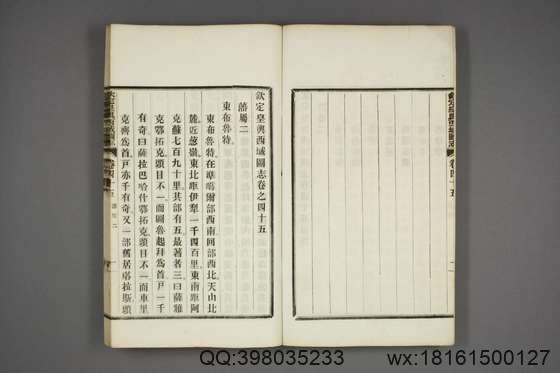 欽定皇輿西域圖志卷之四十五
藩屬二
東布魯特
東布魯特在準噶爾部西南回部西北天山北
麓近葱嶺東北距伊犁一千四百里東南距阿
克蘇七百九十里其部有五最著者三曰薩雅
克鄂拓克頭目不一而圖魯起拜爲首戸一千
有奇曰薩拉巴哈什鄂拓克頭目不一而車里
克齊爲首戸亦千有奇又一部舊居塔拉斯頭
卷四十五
藩屬二
卷四十五
QQ:398035233
wx:18161500127